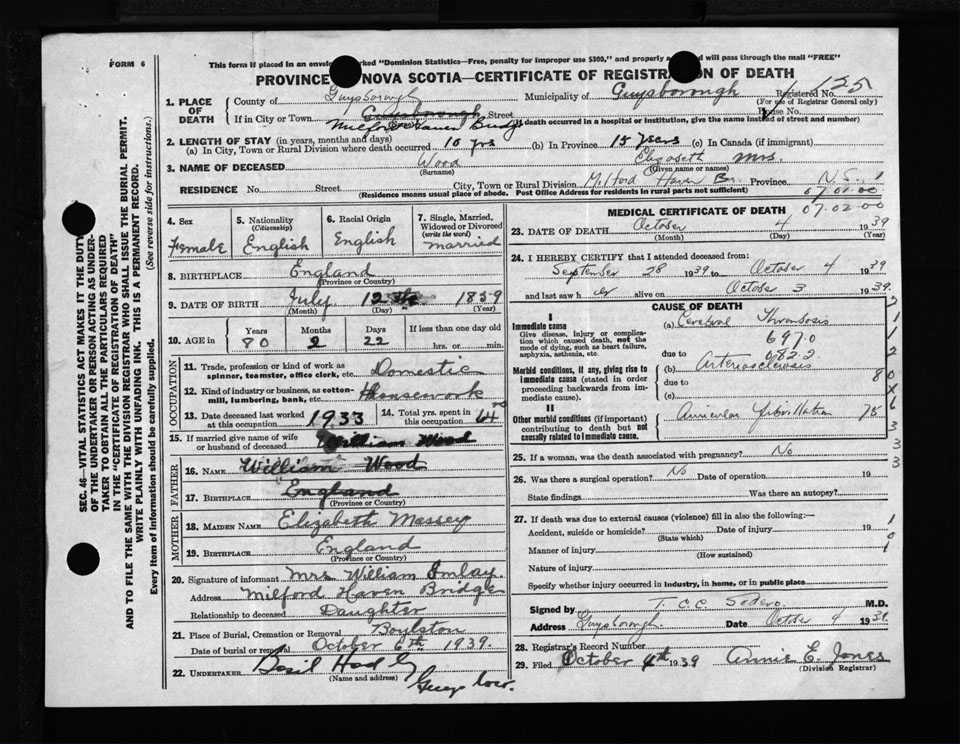 FORM 6
This form if placed in an env marked "Dominion Statistics—Free, penalty for improper use $300," and properly a d will pass through the mail "FREE"
PROVINCE NOVA SCOTIA—CERTIFICATE OF REGISTRA ON OF DEATH
1. PLACE OF DEATH County of Guysborough Municipality of Guysborough Registered No. 125
(For use of Registrar General only)
If in City or Town Guysborough Street House No.
Milford Haven Bridge (If death occurred in a hospital or institution, give the name instead of street and number)
2. LENGTH OF STAY (in years, months and days)
(a) In City, Town or Rural Division where death occurred 10 yrs (b) In Province 15 years (c) In Canada (if immigrant)
3. NAME OF DECEASED Wood Elizabeth Mrs.
(Surname) (Given name or names)
RESIDENCE No. Street City, Town or Rural Division Milford Haven B Province N.S.
(Residence means usual place of abode. Post Office Address for residents in rural parts not sufficient) 07.02.00
4. Sex Female
5. Nationality (Citizenship) English
6. Racial Origin English
7. Single, Married, Widowed or Divorced (write the word) married
8. BIRTHPLACE England
(Province or Country)
9. DATE OF BIRTH July 12th 1859
(Month) (Day) (Year)
10. AGE in Years 80 Months 2 Days 22 If less than one day old hrs. or min.
OCCUPATION
11. Trade, profession or kind of work as spinner, teamster, office clerk, etc. Domestic
12. Kind of industry or business, as cotton-mill, lumbering, bank, etc. Housework
13. Date deceased last worked at this occupation 1933
14. Total yrs. spent in this occupation 64
15. If married give name of wife or husband of deceased William Wood
FATHER
16. NAME William Wood
17. BIRTHPLACE England
(Province or Country)
MOTHER
18. MAIDEN NAME Elizabeth Massey
19. BIRTHPLACE England
(Province or Country)
20. Signature of informant Mrs William Imlay
Address Milford Haven Bridge
Relationship to deceased Daughter
21. Place of Burial, Cremation or Removal Boylston
Date of burial or removal October 6th 1939.
22. UNDERTAKER Basil Hadley
(Name and address) Guys boro.
MEDICAL CERTIFICATE OF DEATH 07.02.00
23. DATE OF DEATH October 4 1939
(Month) (Day) (Year)
24. I HEREBY CERTIFY that I attended deceased from:
September 28 1939 to October 4 1939
and last saw h er alive on October 3 1939.
CAUSE OF DEATH
I
Immediate cause
Give disease, injury or complication which caused death, not the mode of dying, such as heart failure, asphyxia, asthenia, etc.
(a) Cerebral Thrombosis
due to
Morbid conditions, if any, giving rise to immediate cause (stated in order proceeding backwards from immediate cause).
(b) Arteriosclerosis
due to
(c)
II
Other morbid conditions (if important) contributing to death but not causally related to immediate cause.
Auricular Fibrillation
25. If a woman, was the death associated with pregnancy? No
26. Was there a surgical operation? No Date of operation 19
State findings Was there an autopsy?
27. If death was due to external causes (violence) fill in also the following:—
Accident, suicide or homicide? Date of injury 19
(State which)
Manner of injury
(How sustained)
Nature of injury
Specify whether injury occurred in industry, in home, or in public place
Signed by T. C. C. Sodero. M.D.
Address Guysborough. Date October 4 1939.
28. Registrar's Record Number
29. Filed October 4th 1939 Annie E. Jones
(Division Registrar)
SEC. 46—VITAL STATISTICS ACT MAKES IT THE DUTY
OF THE UNDERTAKER OR PERSON ACTING AS UNDER-
TAKER TO OBTAIN ALL THE PARTICULARS REQUIRED
IN THE "CERTIFICATE OF REGISTRATION OF DEATH"
AND TO FILE THE SAME WITH THE DIVISION REGISTRAR WHO SHALL ISSUE THE BURIAL PERMIT.
WRITE PLAINLY WITH UNFADING INK. THIS IS A PERMANENT RECORD.
Every item of information should be carefully supplied. (See reverse side for instructions.)